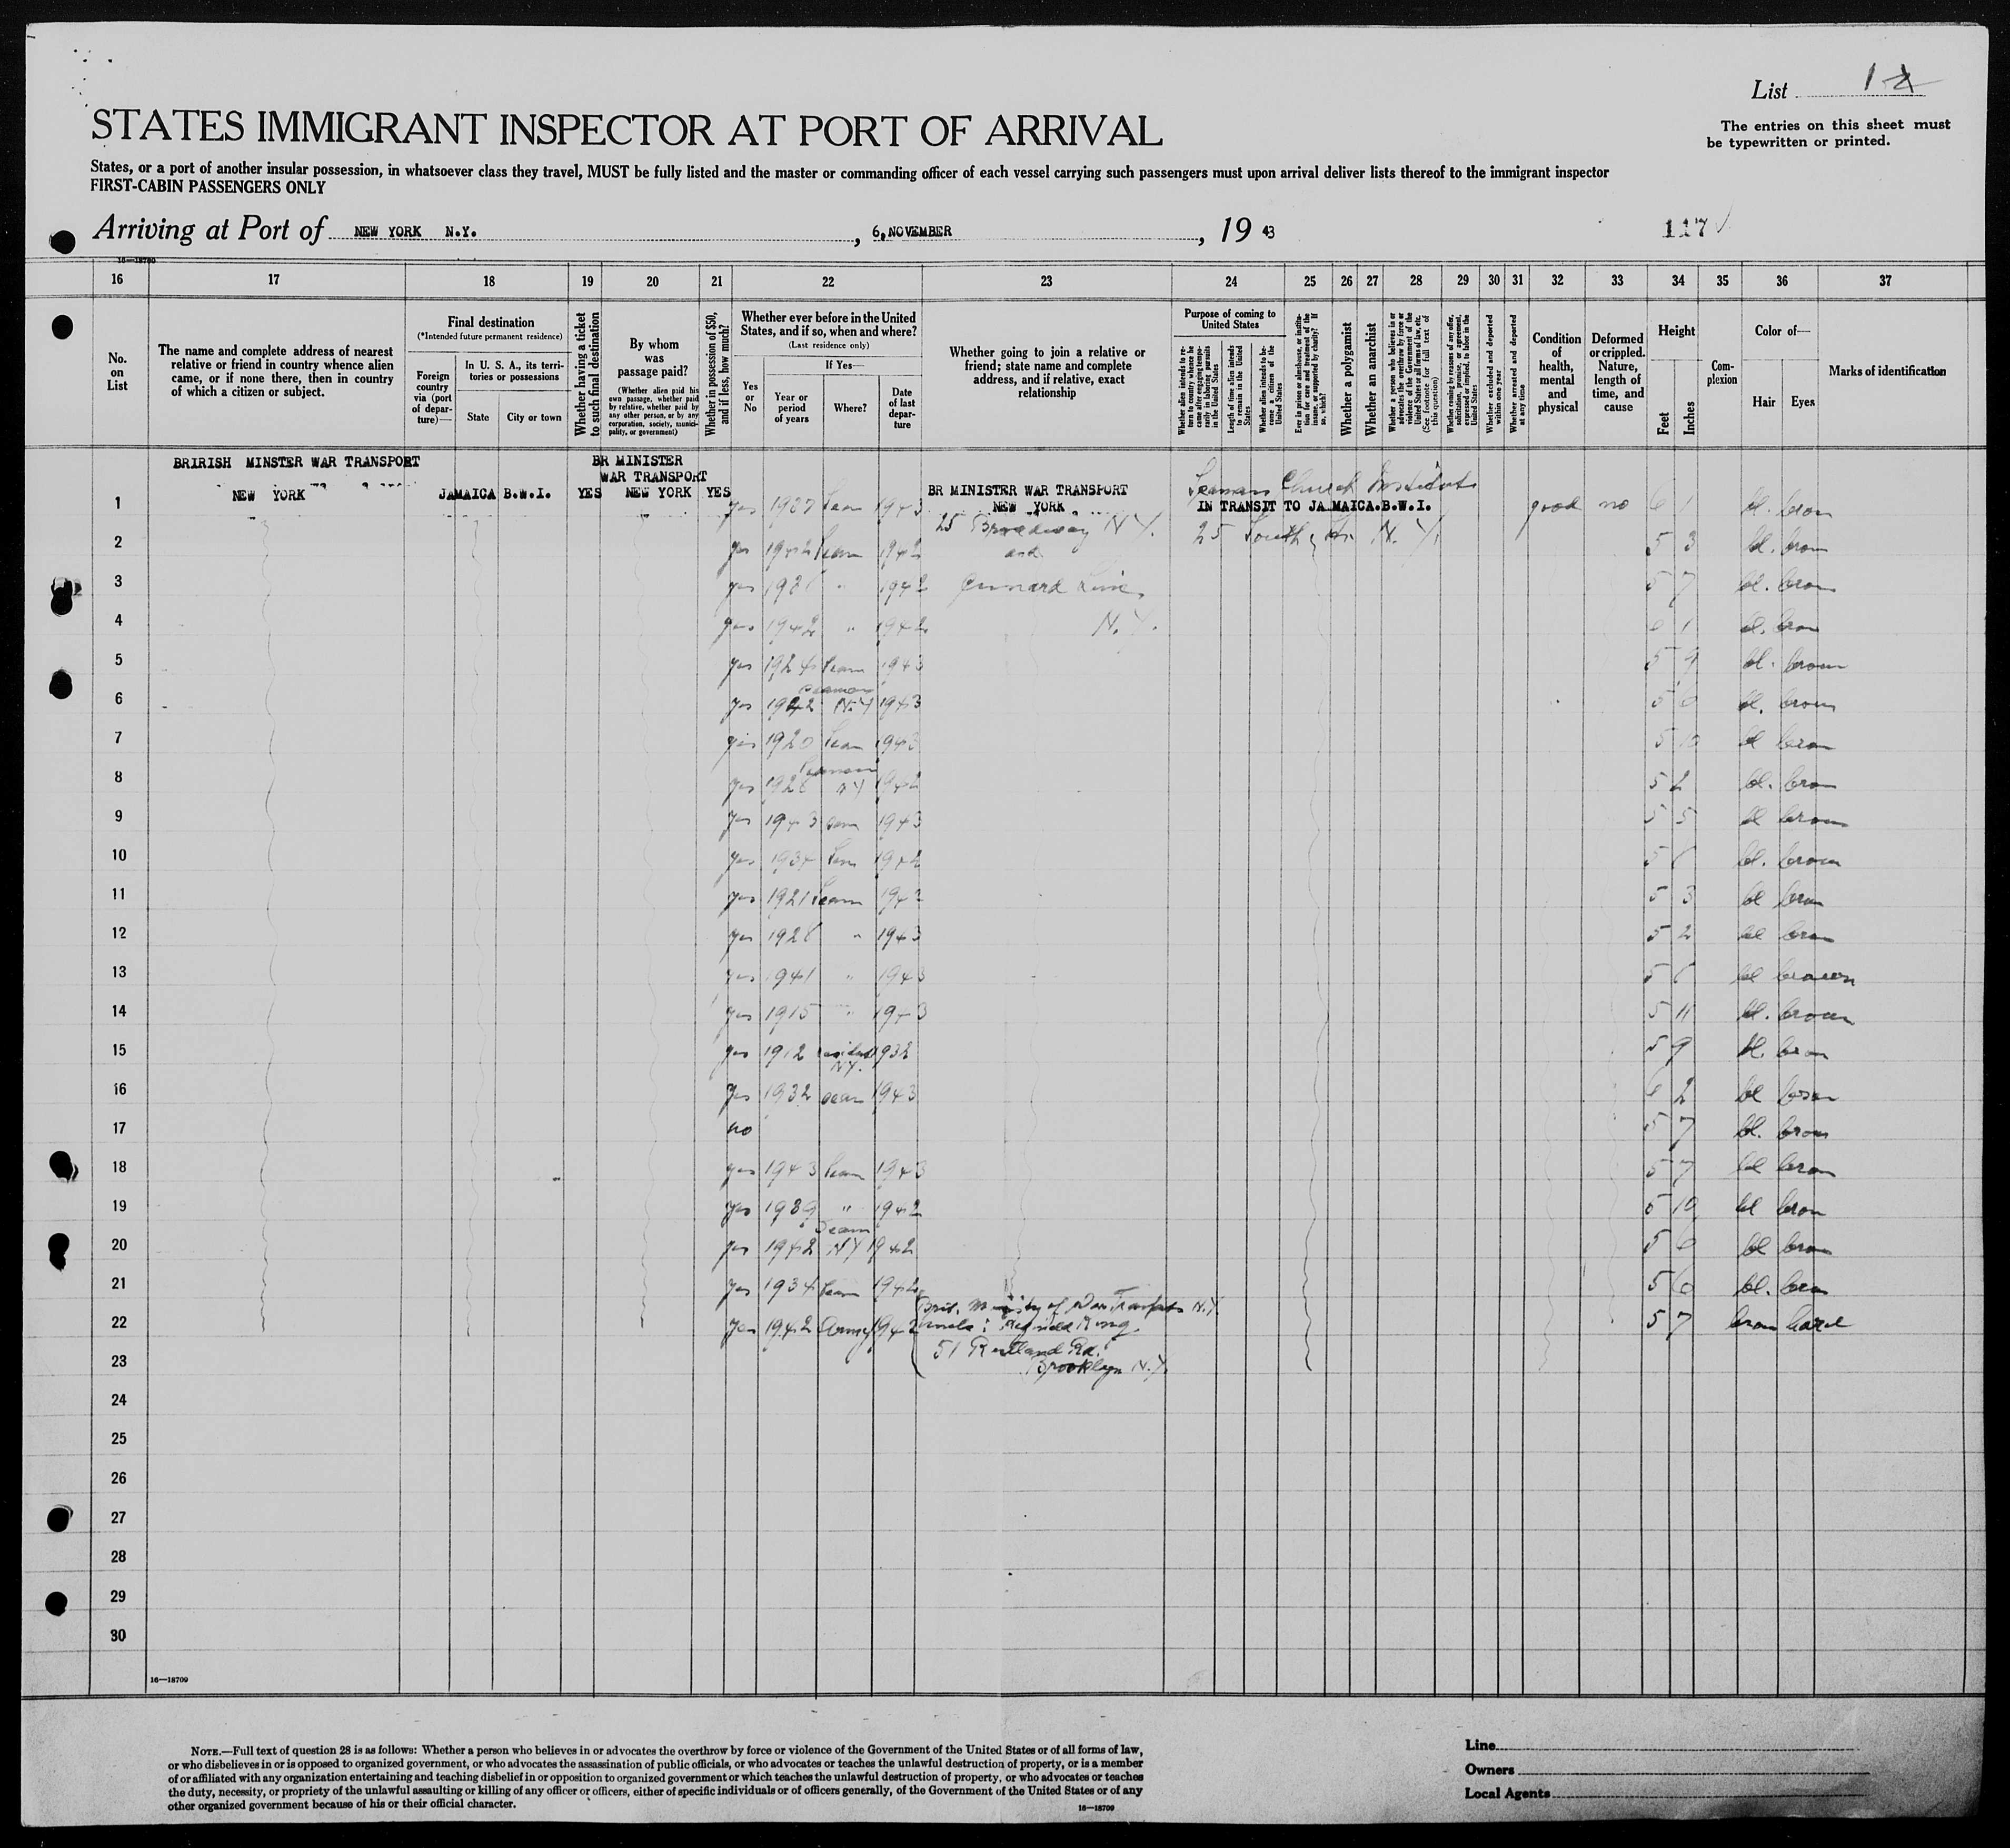 List 1
STATES IMMIGRANT INSPECTOR AT PORT OF ARRIVAL
The entries on this sheet must
be typewritten or printed.
States, or a port of another insular possession, in whatsoever class they travel, MUST be fully listed and the master or commanding officer of each vessel carrying such passengers must upon arrival deliver lists thereof to the immigrant inspector
FIRST-CABIN PASSENGERS ONLY
Arriving at Port of NEW YORK N.Y. , 6,NOVEMBER , 19 43 117
16 17 18 19 20 21 22 23 24 25 26 27 28 29 30 31 32 33 34 35 36 37
No. on List
The name and complete address of nearest relative or friend in country whence alien came, or if none there, then in country of which a citizen or subject.
Final destination
(*Intended future permanent residence)
Foreign country via (port of departure)—
In U. S. A., its territories or possessions
State City or town
Whether having a ticket to such final destination
By whom was passage paid?
(Whether alien paid his own passage, whether paid by relative, whether paid by any other person, or by any corporation, society, municipality, or government)
Whether in possession of $50, and if less, how much?
Whether ever before in the United States, and if so, when and where?
(Last residence only)
Yes or No
If Yes—
Year or period of years
Where?
Date of last departure
Whether going to join a relative or friend; state name and complete address, and if relative, exact relationship
Purpose of coming to United States
Whether alien intends to return to country whence he came after engaging temporarily in laboring pursuits in the United States
Length of time alien intends to remain in the United States
Whether alien intends to become a citizen of the United States
Ever in prison or almshouse, or institution for care and treatment of the insane, or supported by charity? If so, which?
Whether a polygamist
Whether an anarchist
Whether a person who believes in or advocates the overthrow by force or violence of the Government of the United States or all forms of law, etc. (See footnote for full text of this question)
Whether coming by reasons of any offer, solicitation, promise, or agreement, expressed or implied, to labor in the United States
Whether excluded and deported within one year
Whether arrested and deported at any time
Condition of health, mental and physical
Deformed or crippled. Nature, length of time, and cause
Height
Feet Inches
Complexion
Color of—
Hair Eyes
Marks of identification
BRIRISH MINSTER WAR TRANSPORT BR MINISTER
WAR TRANSPORT
Seamans Church Institute
1 NEW YORK JAMAICA B.W.I. YES NEW YORK YES yes Seam 1943 BR MINISTER WAR TRANSPORT NEW YORK IN TRANSIT TO JAMAICA.B.W.I. good no 6 1 bl. bron
25 Broadway N.Y. 25 South St. N.Y.
2 yes 1942 Seam 1942 and 5 3 bl. bron
3 yes " 1942 Cunard Line, 5 7 bl. bron
4 yes 1942 " 1942 N.Y. 6 1 bl. bron
5 yes 1924 Seam 1943 5 9 bl. brown
6 yes 1942 Seaman N.Y 1943 5 6 bl. brown
7 yes 1920 Seam 1943 5 10 bl bron
8 yes Seaman NY 1942 5 2 bl. bron
9 yes 1943 seam 1943 5 5 bl brown
10 yes 1934 Seam 1942 5 bl. brown
11 yes 1921 Seam 5 3 bl bron
12 yes " 1943 5 2 bl bron
13 yes 1941 " 1943 5 bl brown
14 yes 1915 " 1943 5 11 bl. brown
15 yes 1912 resident NY. 1932 5 9 bl. bron
16 yes 1932 seam 1943 6 2 bl bron
17 no 5 7 bl. bron
18 yes 1943 Seam 1943 5 7 bl bron
19 yes 1939 " 1942 5 10 bl bron
20 yes 1942 Seam NY 1942 5 6 bl bron
21 yes 1934 Seam 1942 5 6 bl. bron
Brit. Ministry of War Transports N.Y.
22 yes 1942 Army 1942 uncle: Reginald King 5 7 bron hazel
51 Rutland Rd.
23 Brooklyn N.Y.
24
25
26
27
28
29
30
16—18709
NOTE.—Full text of question 28 is as follows: Whether a person who believes in or advocates the overthrow by force or violence of the Government of the United States or of all forms of law,
or who disbelieves in or is opposed to organized government, or who advocates the assassination of public officials, or who advocates or teaches the unlawful destruction of property, or is a member
of or affiliated with any organization entertaining and teaching disbelief in or opposition to organized government or which teaches the unlawful destruction of property, or who advocates or teaches
the duty, necessity, or propriety of the unlawful assaulting or killing of any officer or officers, either of specific individuals or of officers generally, of the Government of the United States or of any
other organized government because of his or their official character.
16—18709
Line
Owners
Local Agents